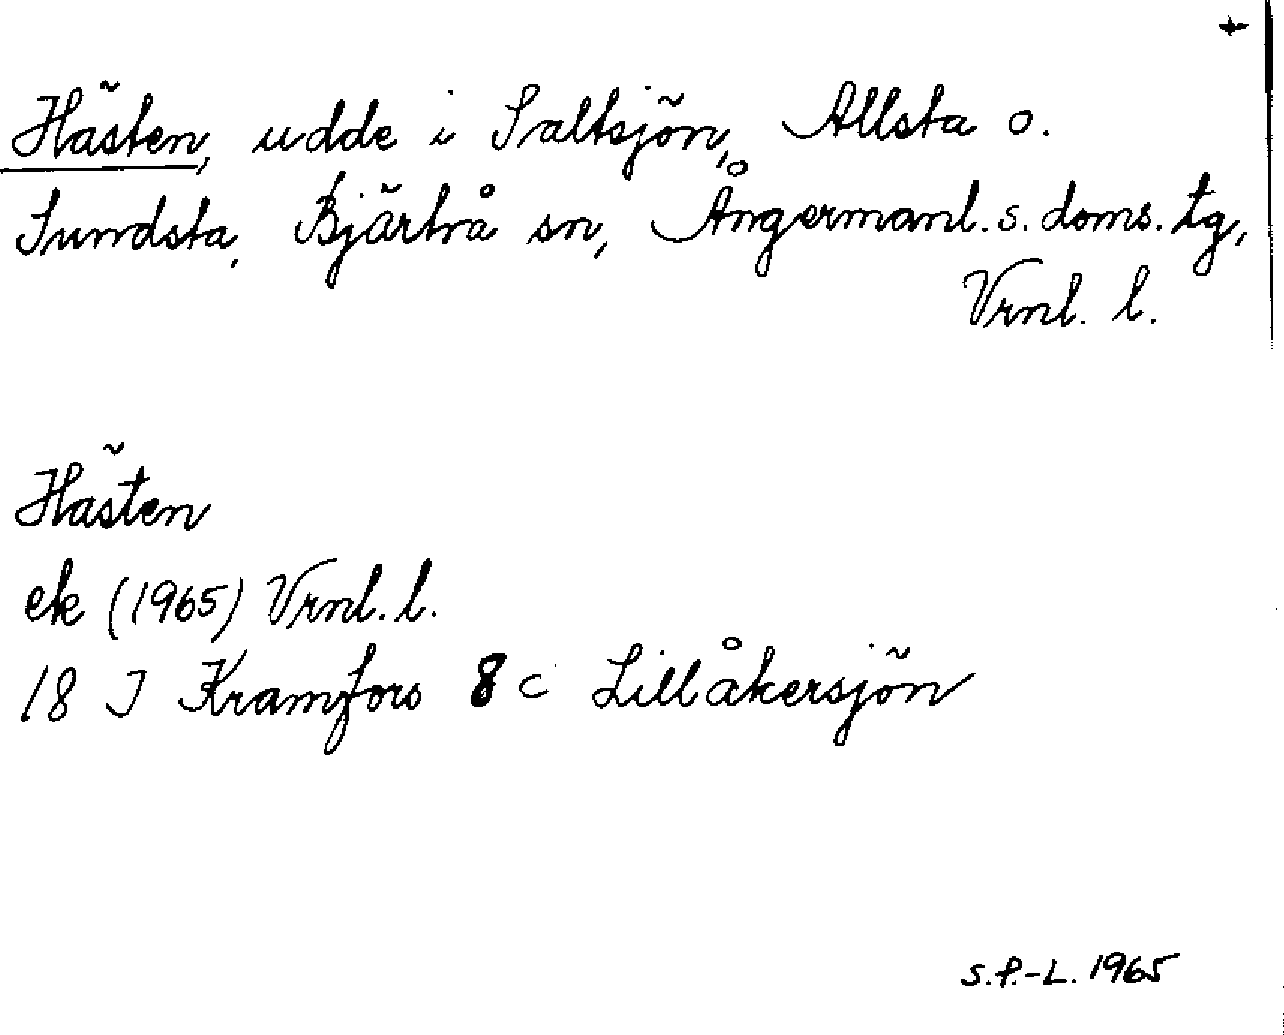 +
Hästen, udde i Saltsjön, Allsta o.
Sundsta, Bjärtrå sn, Ångermanl. s. doms. tg,
Vrnl. l.
Hästen
ek (1965) Vrnl. l.
18 J Kramfors 8 c Lillåkersjön
S.P.-L. 1965